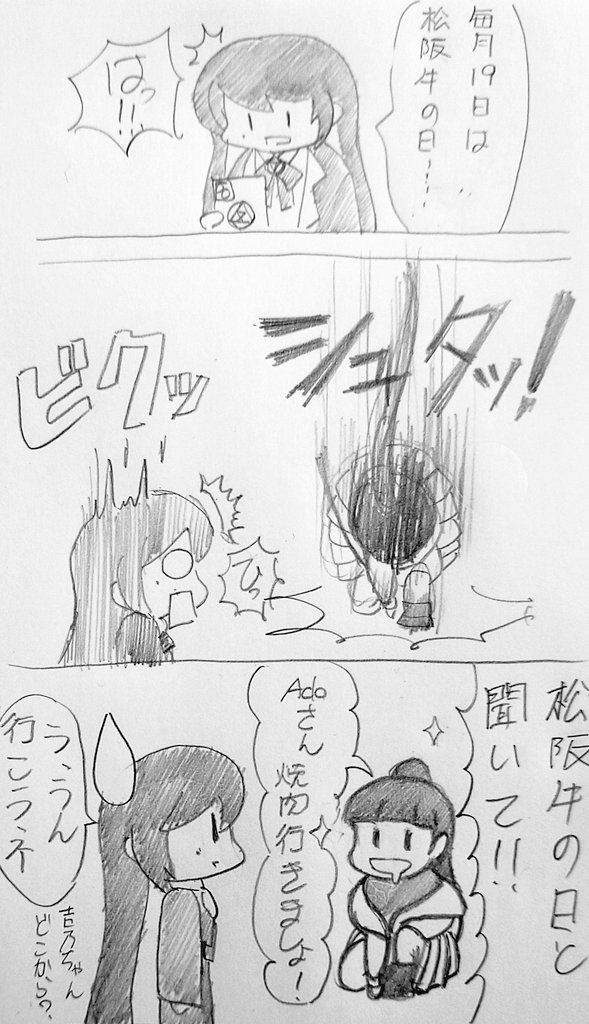 毎月19日は
松阪牛の日〜…
はっ!!
シュタッ!
ビクッ
ひっ
松阪牛の日と
聞いて!!
Adoさん
焼肉行きましょ!
う、うん
行こうネ
吉乃ちゃん
どこから?